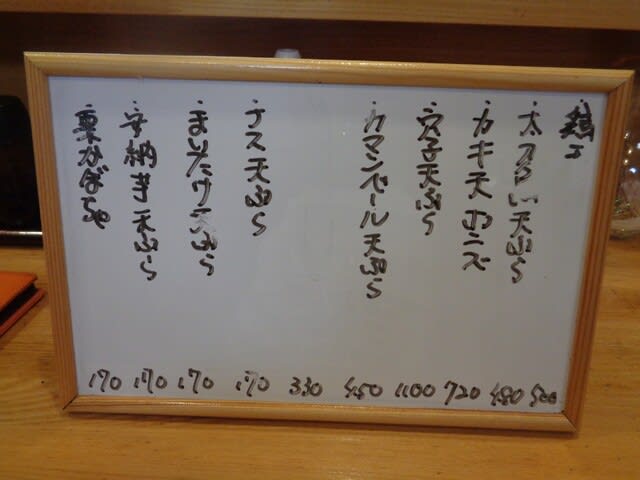 500
・太 天ぷら 480
・カキ天ポンズ 720
・穴子天ぷら 1100
・カマンベール天ぷら 450
330
・ナス天ぷら 170
・まいたけ天ぷら 170
・安納芋天ぷら 170
・栗かぼちゃ 170